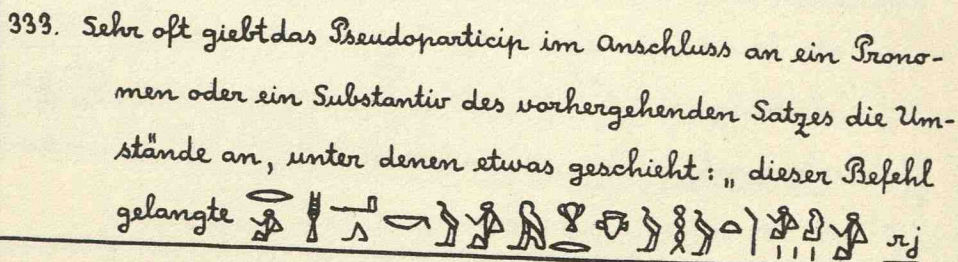 333. Sehr oft giebt das Pseudoparticip im Anschluss an ein Prono-
men oder ein Substantiv des vorhergehenden Satzes die Um-
stände an, unter denen etwas geschieht: „ dieser Befehl
gelangte rj